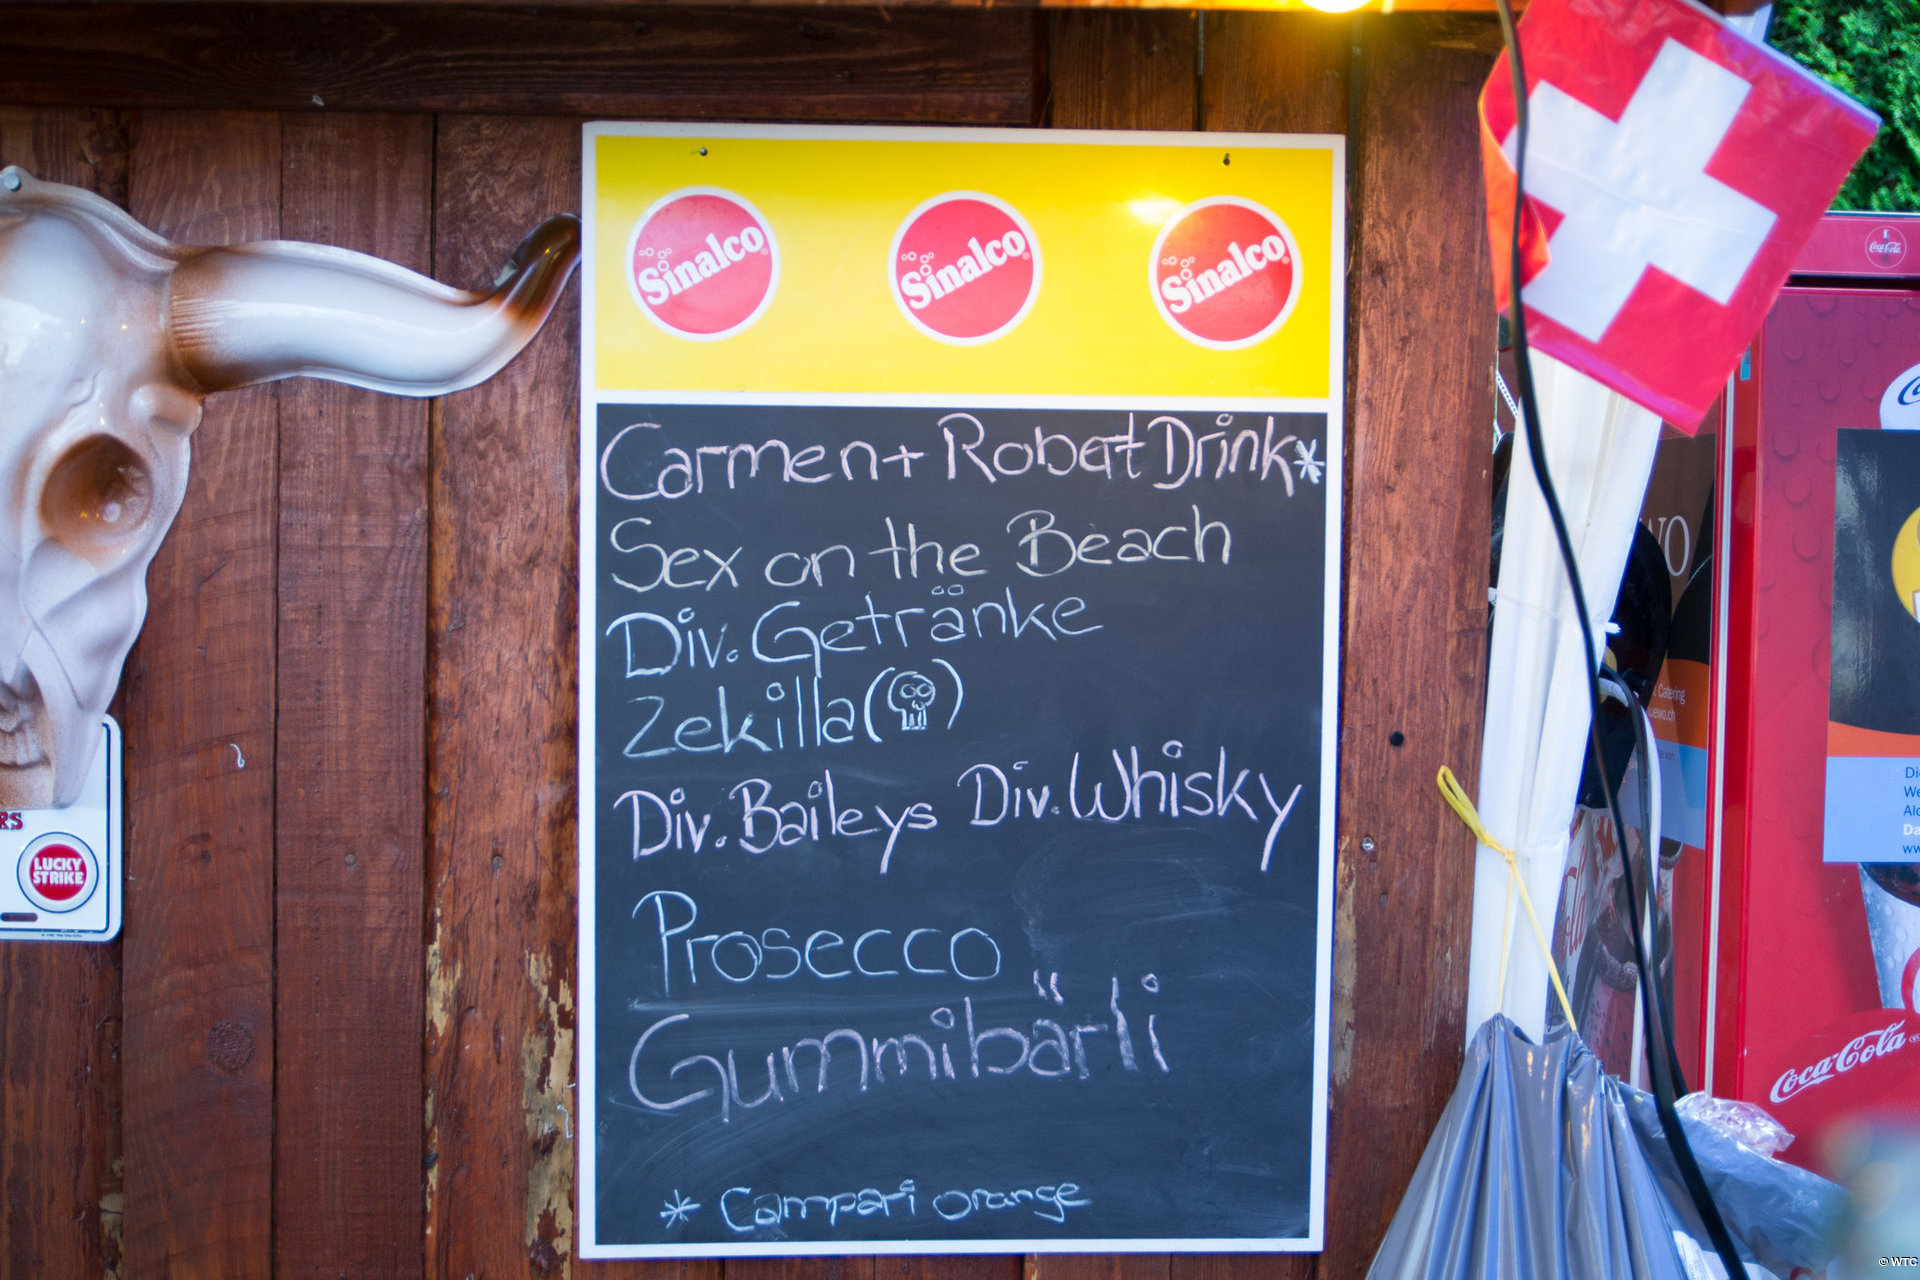 Sinalco
Sinalco
Sinalco
Carmen + Robert Drink*
Sex on the Beach
Div. Getränke
Zekilla ( )
Div. Baileys Div. Whisky
Prosecco
Gummibärli
* Campari orange
RS
LUCKY
STRIKE
Coca-Cola
WO
Catering
Di
We
Da
ww
Coca-Cola
© WTC